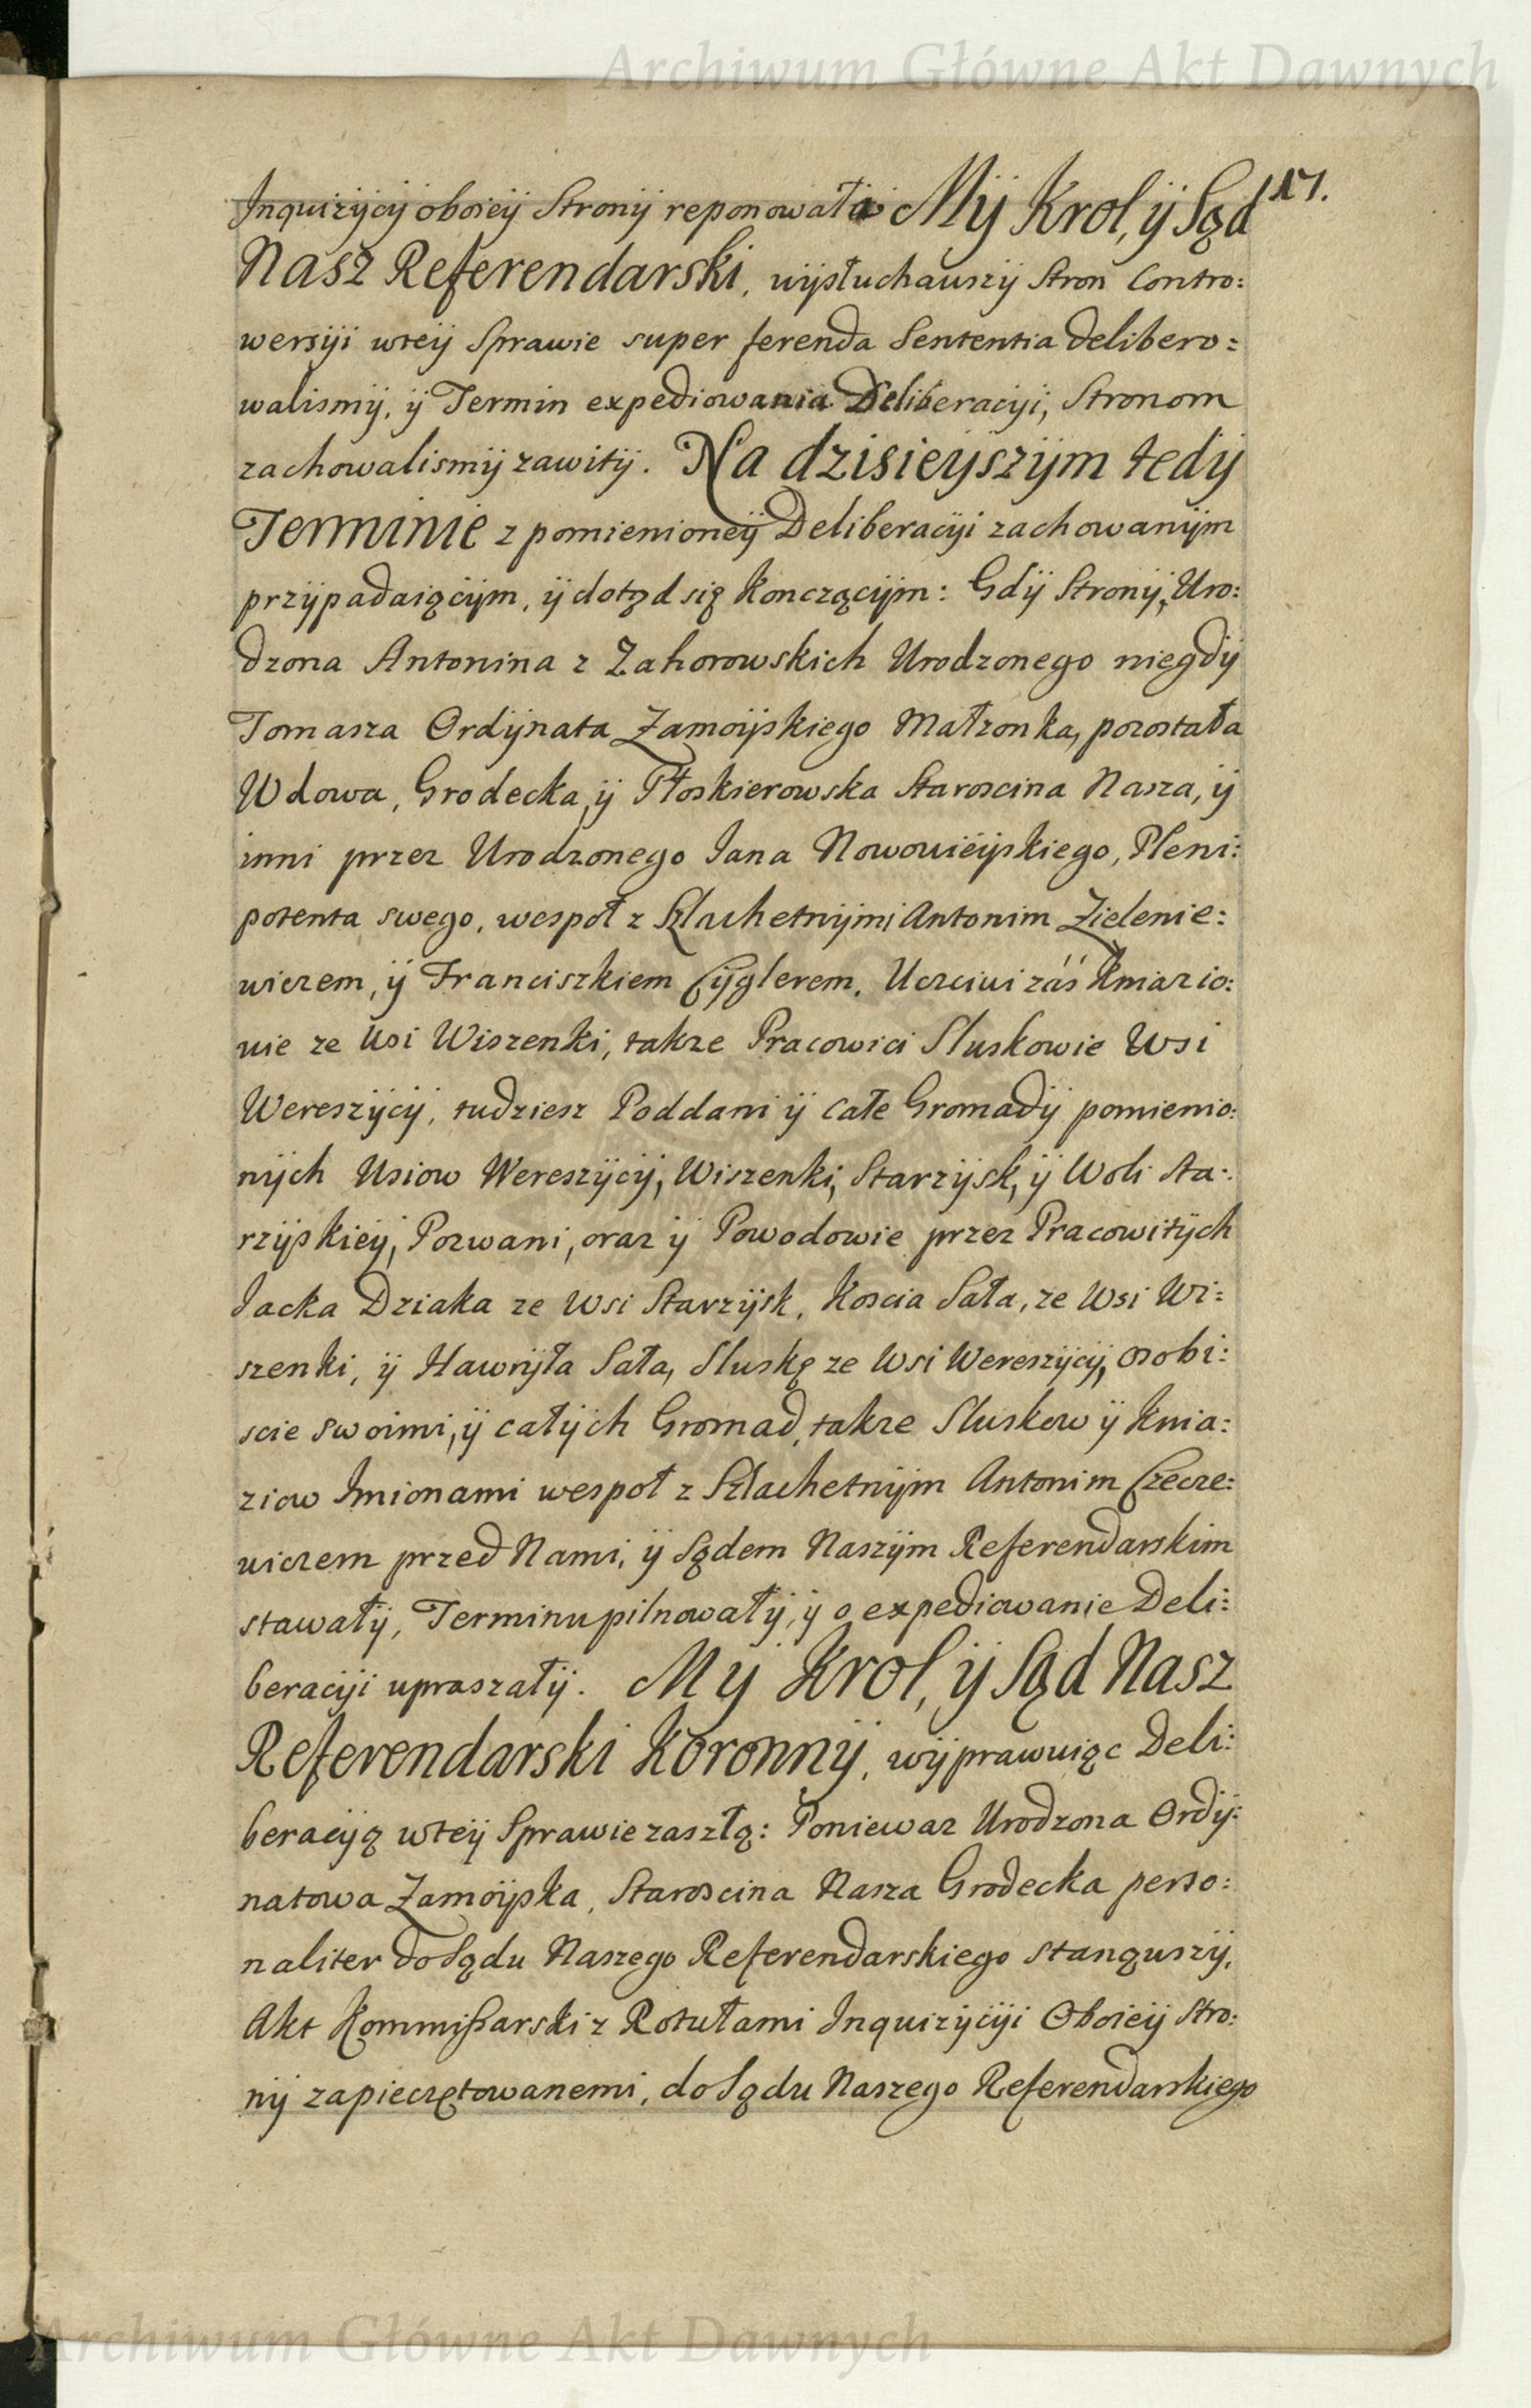 Archiwum Główne Akt Dawnych
117.
Inquizÿcÿ oboieÿ Stronÿ reponowała Mÿ Krol, ÿ Sąd
Nasz Referendarski, wÿsłuchawszÿ Stron Contro:
wersÿi wteÿ Sprawie super ferenda Sententia delibero:
walismÿ, ÿ Termin expediowania Deliberacÿi, Stronom
zachowalismÿ zawitÿ. Na dzisieÿszÿm tedÿ
Terminie z pomienioneÿ Deliberacÿi zachowanÿm
przÿpadaiącÿm, ÿ dotąd się konczącÿm: Gdÿ Stronÿ, Uro:
dzona Antonina z Zahorowskich Urodzonego niegdÿ
Tomasza Ordÿnata Zamoÿskiego Małzonka, pozostała
Wdowa, Grodecka, ÿ Płoskierowska Staroscina Nasza, ÿ
inni przez Urodzonego Jana Nowowieÿskiego, Pleni:
potenta swego, wespoł z Szlachetnÿmi Antonim Zielenie:
wiczem, ÿ Franciszkiem Cÿglerem, Uczciwi záś Kniazio:
wie ze Wsi Wiszenki, takze Pracowici Sluskowie Wsi
Wereszÿcÿ, tudziesz Poddani ÿ całe Gromadÿ pomienio:
nÿch Wsiow Wereszÿcÿ, Wiszenki, Starzÿsk, ÿ Woli Sta:
rzÿskieÿ, Pozwani, oraz ÿ Powodowie przez Pracowitÿch
Jacka Dziaka ze Wsi Starzÿsk, Koscia Sała, ze Wsi Wi:
szenki, ÿ Hawrÿła Sała, Sluskę ze Wsi Wereszÿcÿ, osobi:
scie swoimi, ÿ całÿch Gromad, takze Sluskow ÿ Knia:
ziow Imionami wespoł z Szlachetnÿm Antonim Czecze:
wiczem przed Nami, ÿ Sądem Naszÿm Referendarskim
stawałÿ, Terminu pilnowałÿ, ÿ o expediowanie Deli:
beracÿi upraszałÿ. Mÿ Krol, ÿ Sąd Nasz
Referendarski Koronnÿ, wÿprawuiąc Deli:
beracÿą wteÿ Sprawie zaszłą: Poniewaz Urodzona Ordÿ:
natowa Zamoÿska, Staroscina Nasza Grodecka perso:
naliter do Sądu Naszego Referendarskiego stanąwszÿ,
Akt Kommißarski z Rotułami Inquizÿcÿi Oboieÿ Stro:
nÿ zapieczętowanemi, do Sądu Naszego Referendarskiego
Archiwum Główne Akt Dawnych